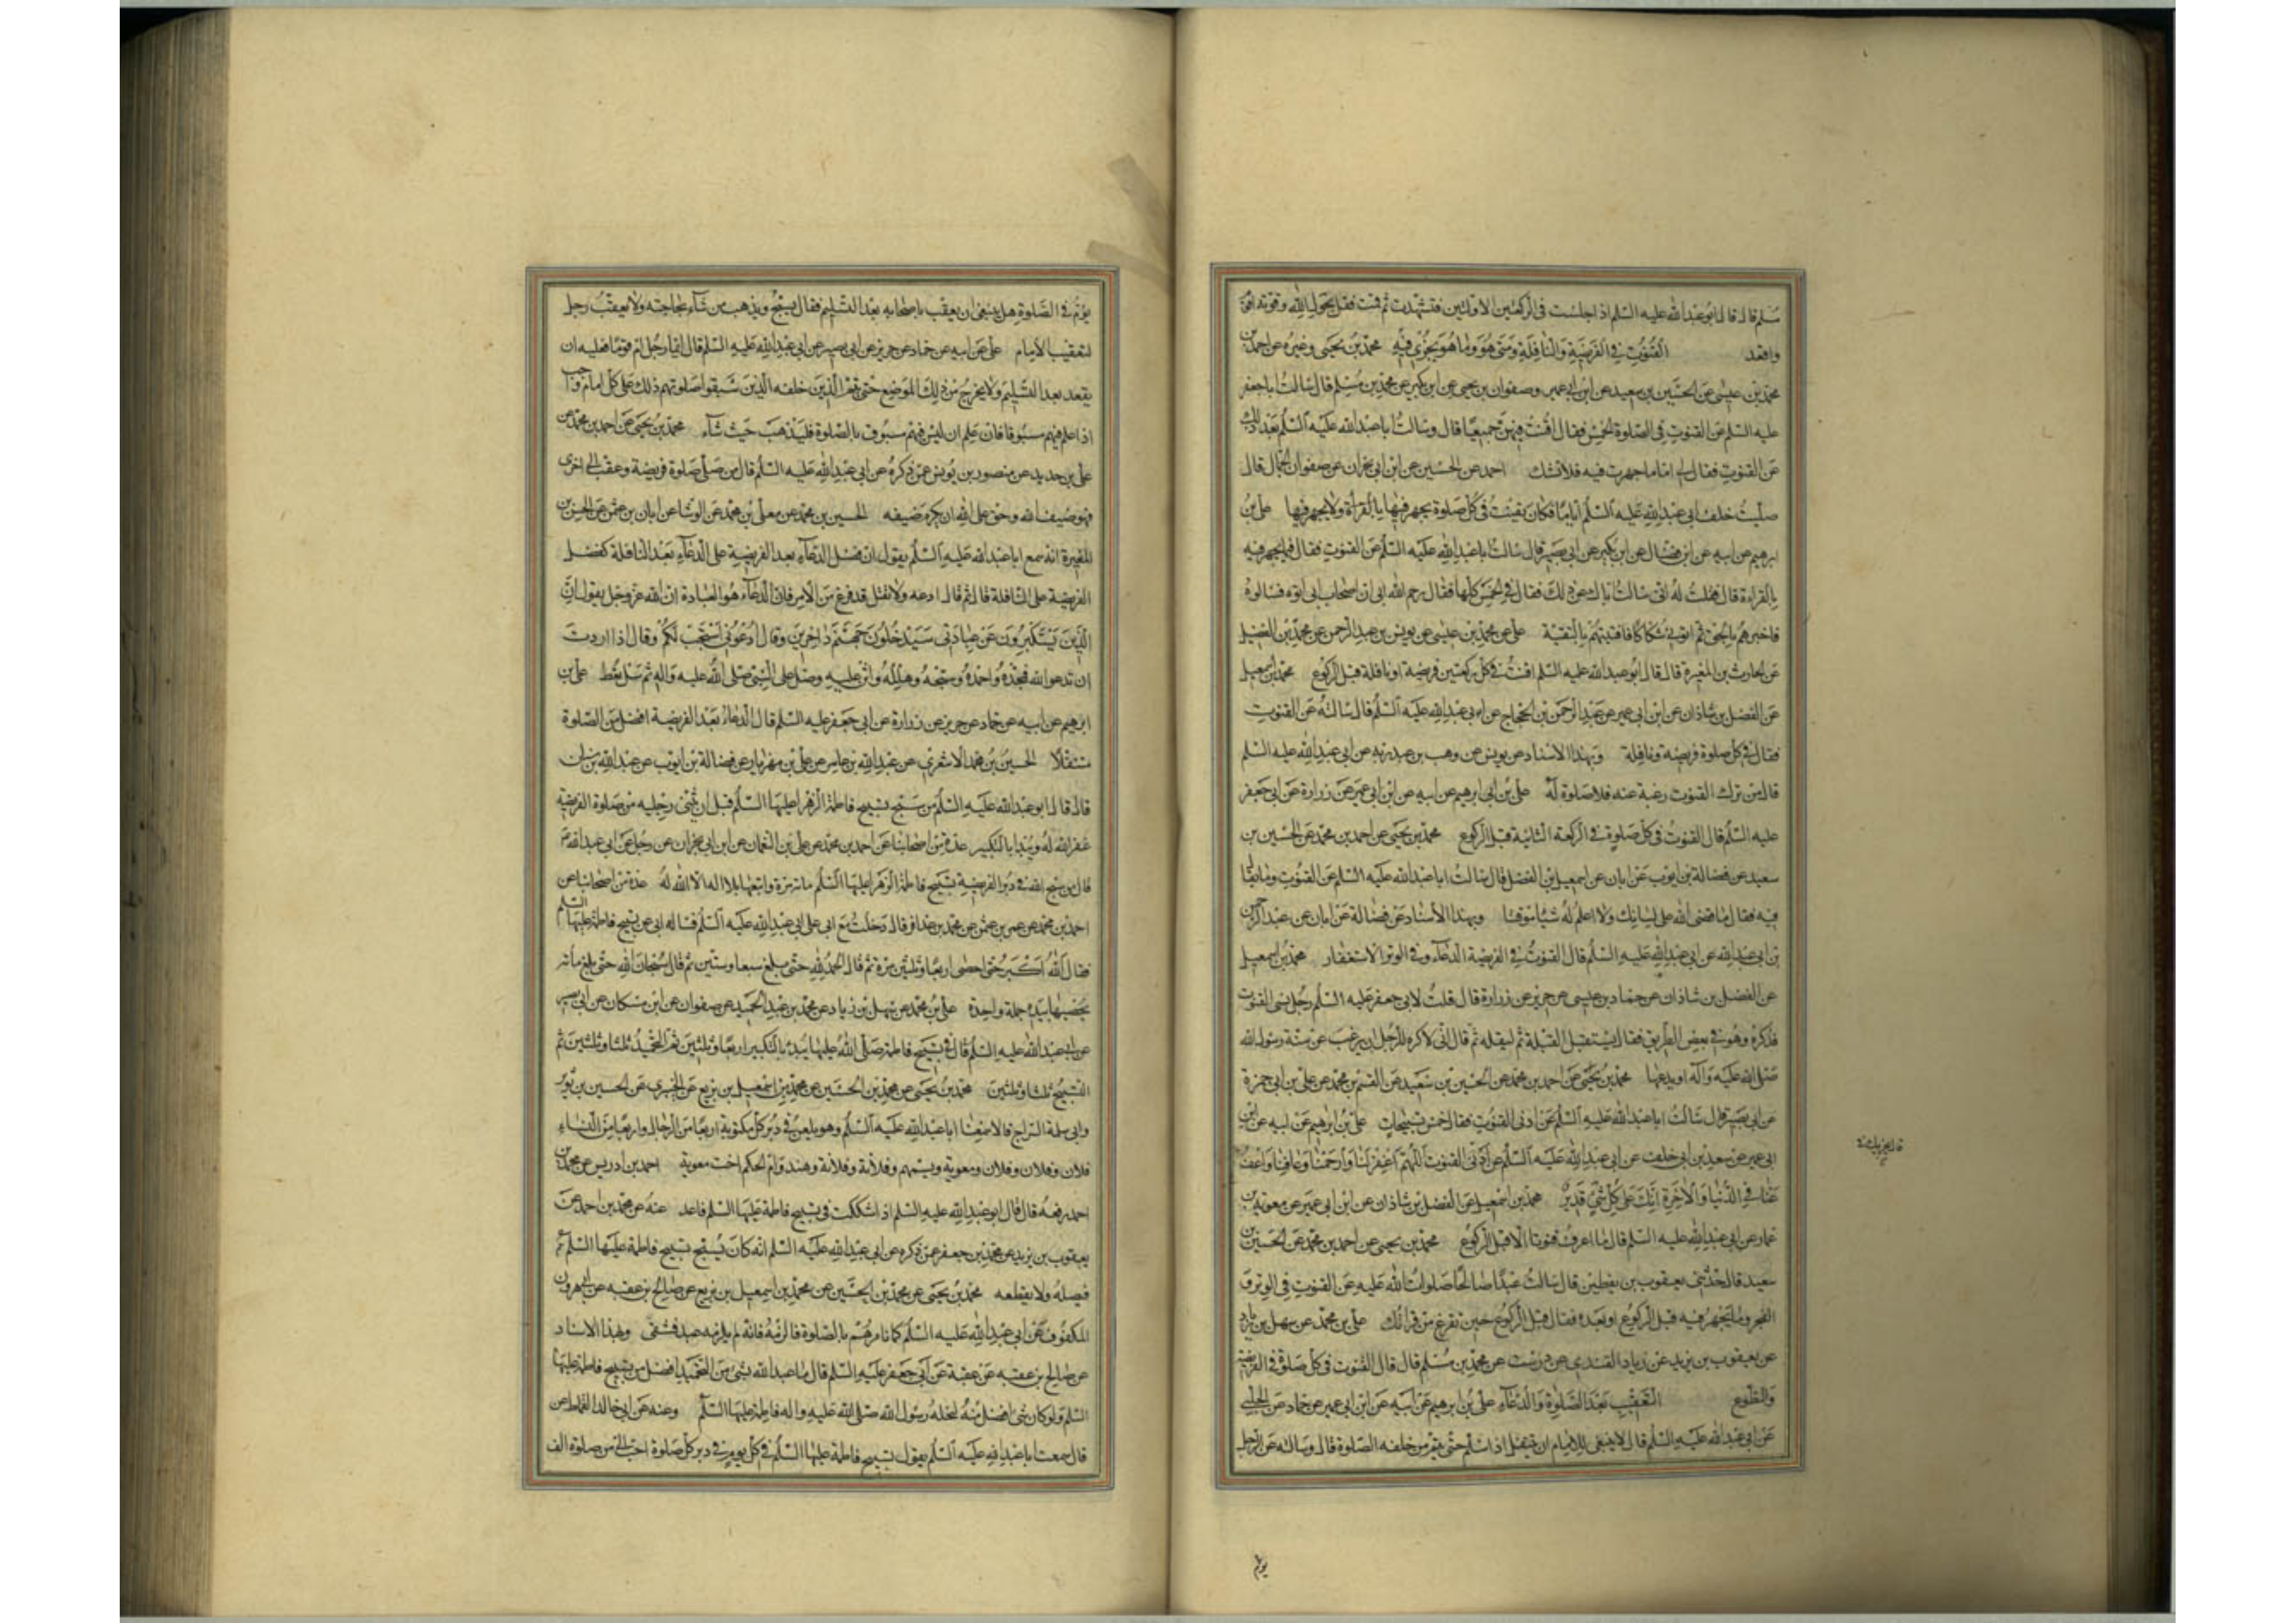 مسلم قال قال ابو عبد الله عليه السلم اذا جلست في الركعتين الاولتين فتشهدت ثم قمت فقل بحول الله وقوته اقوم
واقعد القنوت في الفريضة والنافلة ومتى هو وما هو يجزي فيه محمد بن يحيى وغيره عن احمد بن
محمد بن عيسى عن الحسين بن سعيد عن ابن ابي عمير وصفوان بن يحيى عن ابن بكير عن محمد بن مسلم قال سالت ابا جعفر
عليه السلم عن القنوت في الصلوة الخمس فقال اقنت فيهن جميعا قال وسالت ابا عبد الله عليه السلم بعد ذلك
عن القنوت فقال لي اما ما جهرت فيه فلا تشك احمد عن الحسين عن ابن ابي نجران عن صفوان الجمال قال
صليت خلف ابي عبد الله عليه السلم اياما فكان يقنت في كل صلوة يجهر فيها بالقراة ولا يجهر فيها علي بن
ابرهيم عن ابيه عن ابن فضال عن ابن بكير عن ابي بصير قال سالت ابا عبد الله عليه السلم عن القنوت فقال فيما يجهر فيه
بالقراءة قال فقلت له اني سالت اباك عن ذلك فقال في الخمس كلها فقال رحم الله ابي ان اصحاب ابي اتوه فسالوه
فاخبرهم بالحق ثم اتوني شكاكا فافتيتهم بالتقية علي عن محمد بن عيسى عن يونس بن عبد الرحمن عن محمد بن الفضيل
عن الحارث بن المغيرة قال قال ابو عبد الله عليه السلم اقنت في كل ركعتين فريضة او نافلة قبل الركوع محمد بن اسمعيل
عن الفضل بن شاذان عن ابن ابي عمير عن عبد الرحمن بن الحجاج عن ابي عبد الله عليه السلم قال سالته عن القنوت
فقال في كل صلوة فريضة ونافلة وبهذا الاسناد عن يونس عن وهب بن عبد ربه عن ابي عبد الله عليه السلم
قال من ترك القنوت رغبة عنه فلا صلوة له علي بن ابرهيم عن ابيه عن ابن ابي عمير عن زرارة عن ابي جعفر
عليه السلم قال القنوت في كل صلوة في الركعة الثانية قبل الركوع محمد بن يحيى عن احمد بن محمد عن الحسين بن
سعيد عن فضالة بن ايوب عن ابان عن اسمعيل بن الفضل قال سالت ابا عبد الله عليه السلم عن القنوت وما يقال
فيه فقال ما قضى الله على لسانك ولا اعلم له شيئا موقتا وبهذا الاسناد عن فضالة عن ابان عن عبد الرحمن
بن ابي عبد الله عن ابي عبد الله عليه السلم قال القنوت في الفريضة الدعاء وفي الوتر الاستغفار محمد بن اسمعيل
عن الفضل بن شاذان عن حماد بن عيسى عن حريز عن زرارة قال قلت لابي جعفر عليه السلم رجل نسى القنوت
فذكره وهو في بعض الطريق فقال يستقبل القبلة ثم ليقله ثم قال اني لاكره للرجل ان يرغب عن سنة رسول الله
صلى الله عليه واله او يدعها محمد بن يحيى عن احمد بن محمد عن الحسين بن سعيد عن القسم بن محمد عن علي بن ابي حمزة
عن ابي بصير قال سالت ابا عبد الله عليه السلم عن ادنى القنوت فقال خمس تسبيحات علي بن ابرهيم عن ابيه عن ابن
ابي عمير عن سعد بن ابي خلف عن ابي عبد الله عليه السلم عن ادنى القنوت اللهم اغفر لنا وارحمنا وعافنا واعف
عنا في الدنيا والاخرة انك على كل شئ قدير محمد بن اسمعيل عن الفضل بن شاذان عن ابن ابي عمير عن معوية بن
عمار عن ابي عبد الله عليه السلم قال ما اعرف قنوتا الا قبل الركوع محمد بن يحيى عن احمد بن محمد عن الحسين بن
سعيد قال حدثني يعقوب بن يقطين قال سالت عبدا صالحا صلوات الله عليه عن القنوت في الوتر و
الفجر وما يجهر فيه قبل الركوع او بعده فقال قبل الركوع حين تفرغ من قراتك علي بن محمد عن سهل بن زياد
عن يعقوب بن يزيد عن زياد القندي عن درست عن محمد بن مسلم قال قال القنوت في كل صلوة في الفريضة
والتطوع التعقيب بعد الصلوة والدعاء علي بن ابرهيم عن ابيه عن ابن ابي عمير عن حماد عن الحلبي
عن ابي عبد الله عليه السلم قال لا ينبغي للامام ان ينتقل اذا سلم حتى يتم من خلفه الصلوة قال وسالته عن الرجل
يؤم
يؤم في الصلوة هل ينبغي ان يعقب باصحابه بعد التسليم فقال يسبح ويذهب من شاء لحاجته ولا يعقب رجل
لتعقيب الامام علي عن ابيه عن حماد عن حريز عن ابي بصير عن ابي عبد الله عليه السلم قال ايما رجل ام قوما فعليه ان
يقعد بعد التسليم ولا يخرج من ذلك الموضع حتى يتم الذين خلفه الذين سبقوا صلوتهم ذلك على كل امام واجب
اذا علم فيهم مسبوقا فان علم ان ليس فيهم مسبوق بالصلوة فليذهب حيث شاء محمد بن يحيى عن احمد بن محمد عن
علي بن حديد عن منصور بن يونس عمن ذكره عن ابي عبد الله عليه السلم قال من صلى صلوة فريضة وعقب الى اخرى
فهو ضيف الله وحق على الله ان يكرم ضيفه الحسين بن محمد عن معلى بن محمد عن الوشا عن ابان بن عثمن عن الحسن بن
المغيرة انه سمع ابا عبد الله عليه السلم يقول ان فضل الدعاء بعد الفريضة على الدعاء بعد النافلة كفضل
الفريضة على النافلة قال ثم قال ادعه ولا تقل قد فرغ من الامر فان الدعاء هو العبادة ان الله عز وجل يقول ان
الذين يستكبرون عن عبادتي سيدخلون جهنم داخرين وقال ادعوني استجب لكم وقال اذا اردت
ان تدعو الله فمجده واحمده وسبحه وهلله واثن عليه وصل على النبي صلى الله عليه واله ثم سل تعط علي بن
ابرهيم عن ابيه عن حماد عن حريز عن زرارة عن ابي جعفر عليه السلم قال الدعاء بعد الفريضة افضل من الصلوة
متنفلا الحسين بن محمد الاشعري عن عبد الله بن عامر عن علي بن مهزيار عن فضالة بن ايوب عن عبد الله بن سنان
قال قال ابو عبد الله عليه السلم من سبح تسبيح فاطمة الزهرا عليها السلم قبل ان يثنى رجليه من صلوة الفريضة
غفر الله له ويبدا بالتكبير عدة من اصحابنا عن احمد بن محمد عن علي بن النعمان عن ابن ابي نجران عن رجل عن ابي عبد الله
قال من سبح الله في دبر الفريضة تسبيح فاطمة الزهرا عليها السلم مائة مرة واتبعها بلا اله الا الله له عدة من اصحابنا عن
احمد بن محمد عن عمرو بن عثمن عن محمد بن عذافر قال دخلت مع ابي على ابي عبد الله عليه السلم فساله ابي عن تسبيح فاطمة عليها السلم
فقال الله اكبر حتى احصى اربعا وثلثين مرة ثم قال الحمد لله حتى بلغ سبعا وستين ثم قال سبحان الله حتى بلغ مائة
يحصيها بيده جملة واحدة علي بن محمد عن سهل بن زياد عن محمد بن عبد الحميد عن صفوان عن ابن مسكان عن ابي بصير
عن ابي عبد الله عليه السلم قال في تسبيح فاطمة صلى الله عليها يبدء بالتكبير اربعا وثلثين ثم التحميد ثلثا وثلثين ثم
التسبيح ثلثا وثلثين محمد بن يحيى عن محمد بن الحسين عن محمد بن اسمعيل بن بزيع عن الخيبري عن الحسين بن ثوير
وابي سلمة السراج قالا سمعنا ابا عبد الله عليه السلم وهو يلعن في دبر كل مكتوبة اربعا من الرجال واربعا من النساء
فلان وفلان وفلان ومعوية ويسميهم وفلانة وفلانة وهند وام الحكم اخت معوية احمد بن ادريس عن محمد بن
احمد رفعه قال قال ابو عبد الله عليه السلم اذا شككت في تسبيح فاطمة عليها السلم فاعد عنه عن محمد بن احمد عن
يعقوب بن يزيد عن محمد بن جعفر عمن ذكره عن ابي عبد الله عليه السلم انه كان يسبح تسبيح فاطمة عليها السلم
فيصله ولا يقطعه محمد بن يحيى عن محمد بن الحسين عن محمد بن اسمعيل بن بزيع عن صالح بن عقبه عن ابي هرون
المكفوف عن ابي عبد الله عليه السلم كما نامرهم بالصلوة فالزمه فانه لم يلزمه عبد فشقى وبهذا الاسناد
عن صالح بن عقبه عن عقبة عن ابي جعفر عليه السلم قال ما عبد الله بشئ من التحميد افضل من تسبيح فاطمة عليها
السلم ولو كان شئ افضل منه لنحله رسول الله صلى الله عليه واله فاطمة عليها السلم وعنه عن ابي خالد القماط عن
قال سمعت ابا عبد الله عليه السلم يقول تسبيح فاطمة عليها السلم في كل يوم في دبر كل صلوة احب الي من صلوة الف